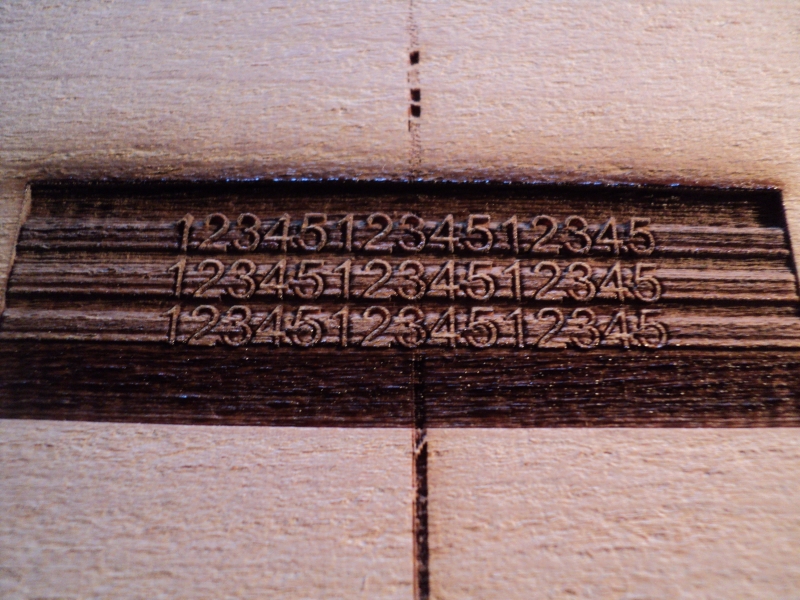 123451234512345
123451234512345
123451234512345